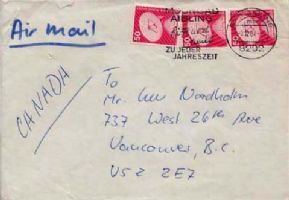 Air mail
AIBLING
ZU JEDER
JAHRESZEIT
50
CANADA
To
Mr. Nordholm
737 West 26th Ave
Vancouver, B.C.
V5Z 2E7